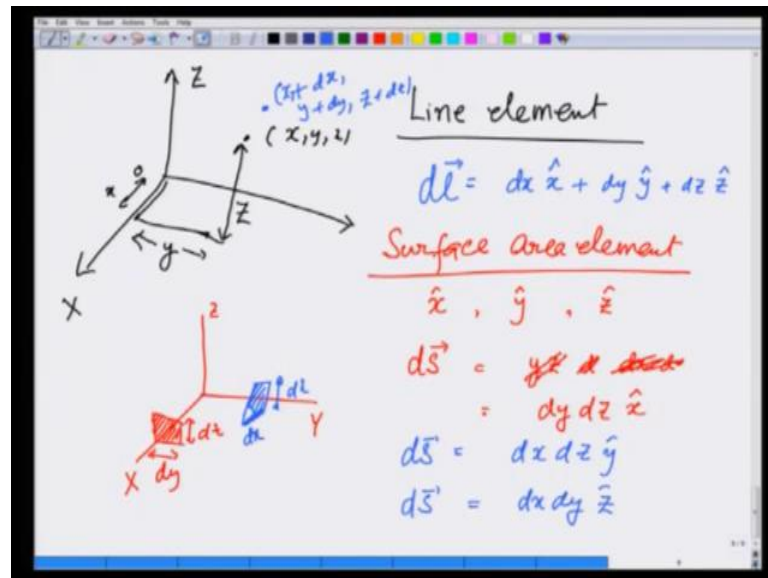 File Edit View Insert Actions Tools Help
Z
(x+dx,
y+dy, z+dz)
(x,y,z)
x
0
Z
y
X
Line element
dl⃗ = dx x̂ + dy ŷ + dz ẑ
Surface area element
x̂ , ŷ , ẑ
dS⃗ =
= dy dz x̂
dS⃗ = dx dz ŷ
dS⃗ = dx dy ẑ
z
dz
dx
Y
dz
dy
X